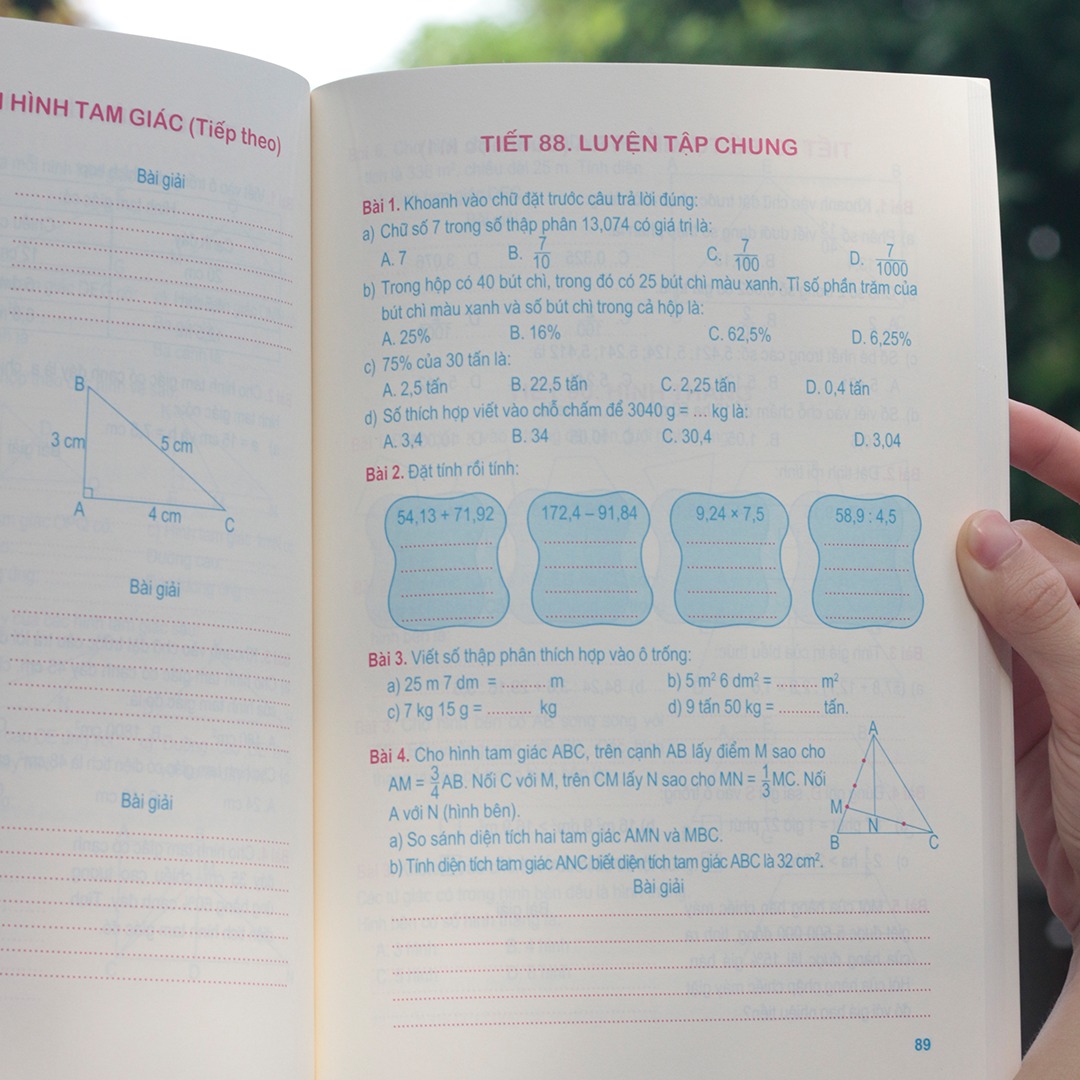 HÌNH TAM GIÁC (Tiếp theo)
Bài giải
B
3 cm
5 cm
A
4 cm
C
Bài giải
Bài giải
TIẾT 88. LUYỆN TẬP CHUNG
Bài 1. Khoanh vào chữ đặt trước câu trả lời đúng:
a) Chữ số 7 trong số thập phân 13,074 có giá trị là:
A. 7 B. 7/10 C. 7/100 D. 7/1000
b) Trong hộp có 40 bút chì, trong đó có 25 bút chì màu xanh. Tỉ số phần trăm của
bút chì màu xanh và số bút chì trong cả hộp là:
A. 25% B. 16% C. 62,5% D. 6,25%
c) 75% của 30 tấn là:
A. 2,5 tấn B. 22,5 tấn C. 2,25 tấn D. 0,4 tấn
d) Số thích hợp viết vào chỗ chấm để 3040 g = ... kg là:
A. 3,4 B. 34 C. 30,4 D. 3,04
Bài 2. Đặt tính rồi tính:
54,13 + 71,92 172,4 – 91,84 9,24 × 7,5 58,9 : 4,5
Bài 3. Viết số thập phân thích hợp vào ô trống:
a) 25 m 7 dm = .......... m b) 5 m² 6 dm² = .......... m²
c) 7 kg 15 g = .......... kg d) 9 tấn 50 kg = .......... tấn.
Bài 4. Cho hình tam giác ABC, trên cạnh AB lấy điểm M sao cho
AM = 3/4 AB. Nối C với M, trên CM lấy N sao cho MN = 1/3 MC. Nối
A với N (hình bên).
a) So sánh diện tích hai tam giác AMN và MBC.
b) Tính diện tích tam giác ANC biết diện tích tam giác ABC là 32 cm².
A
M
N
B
C
Bài giải
89